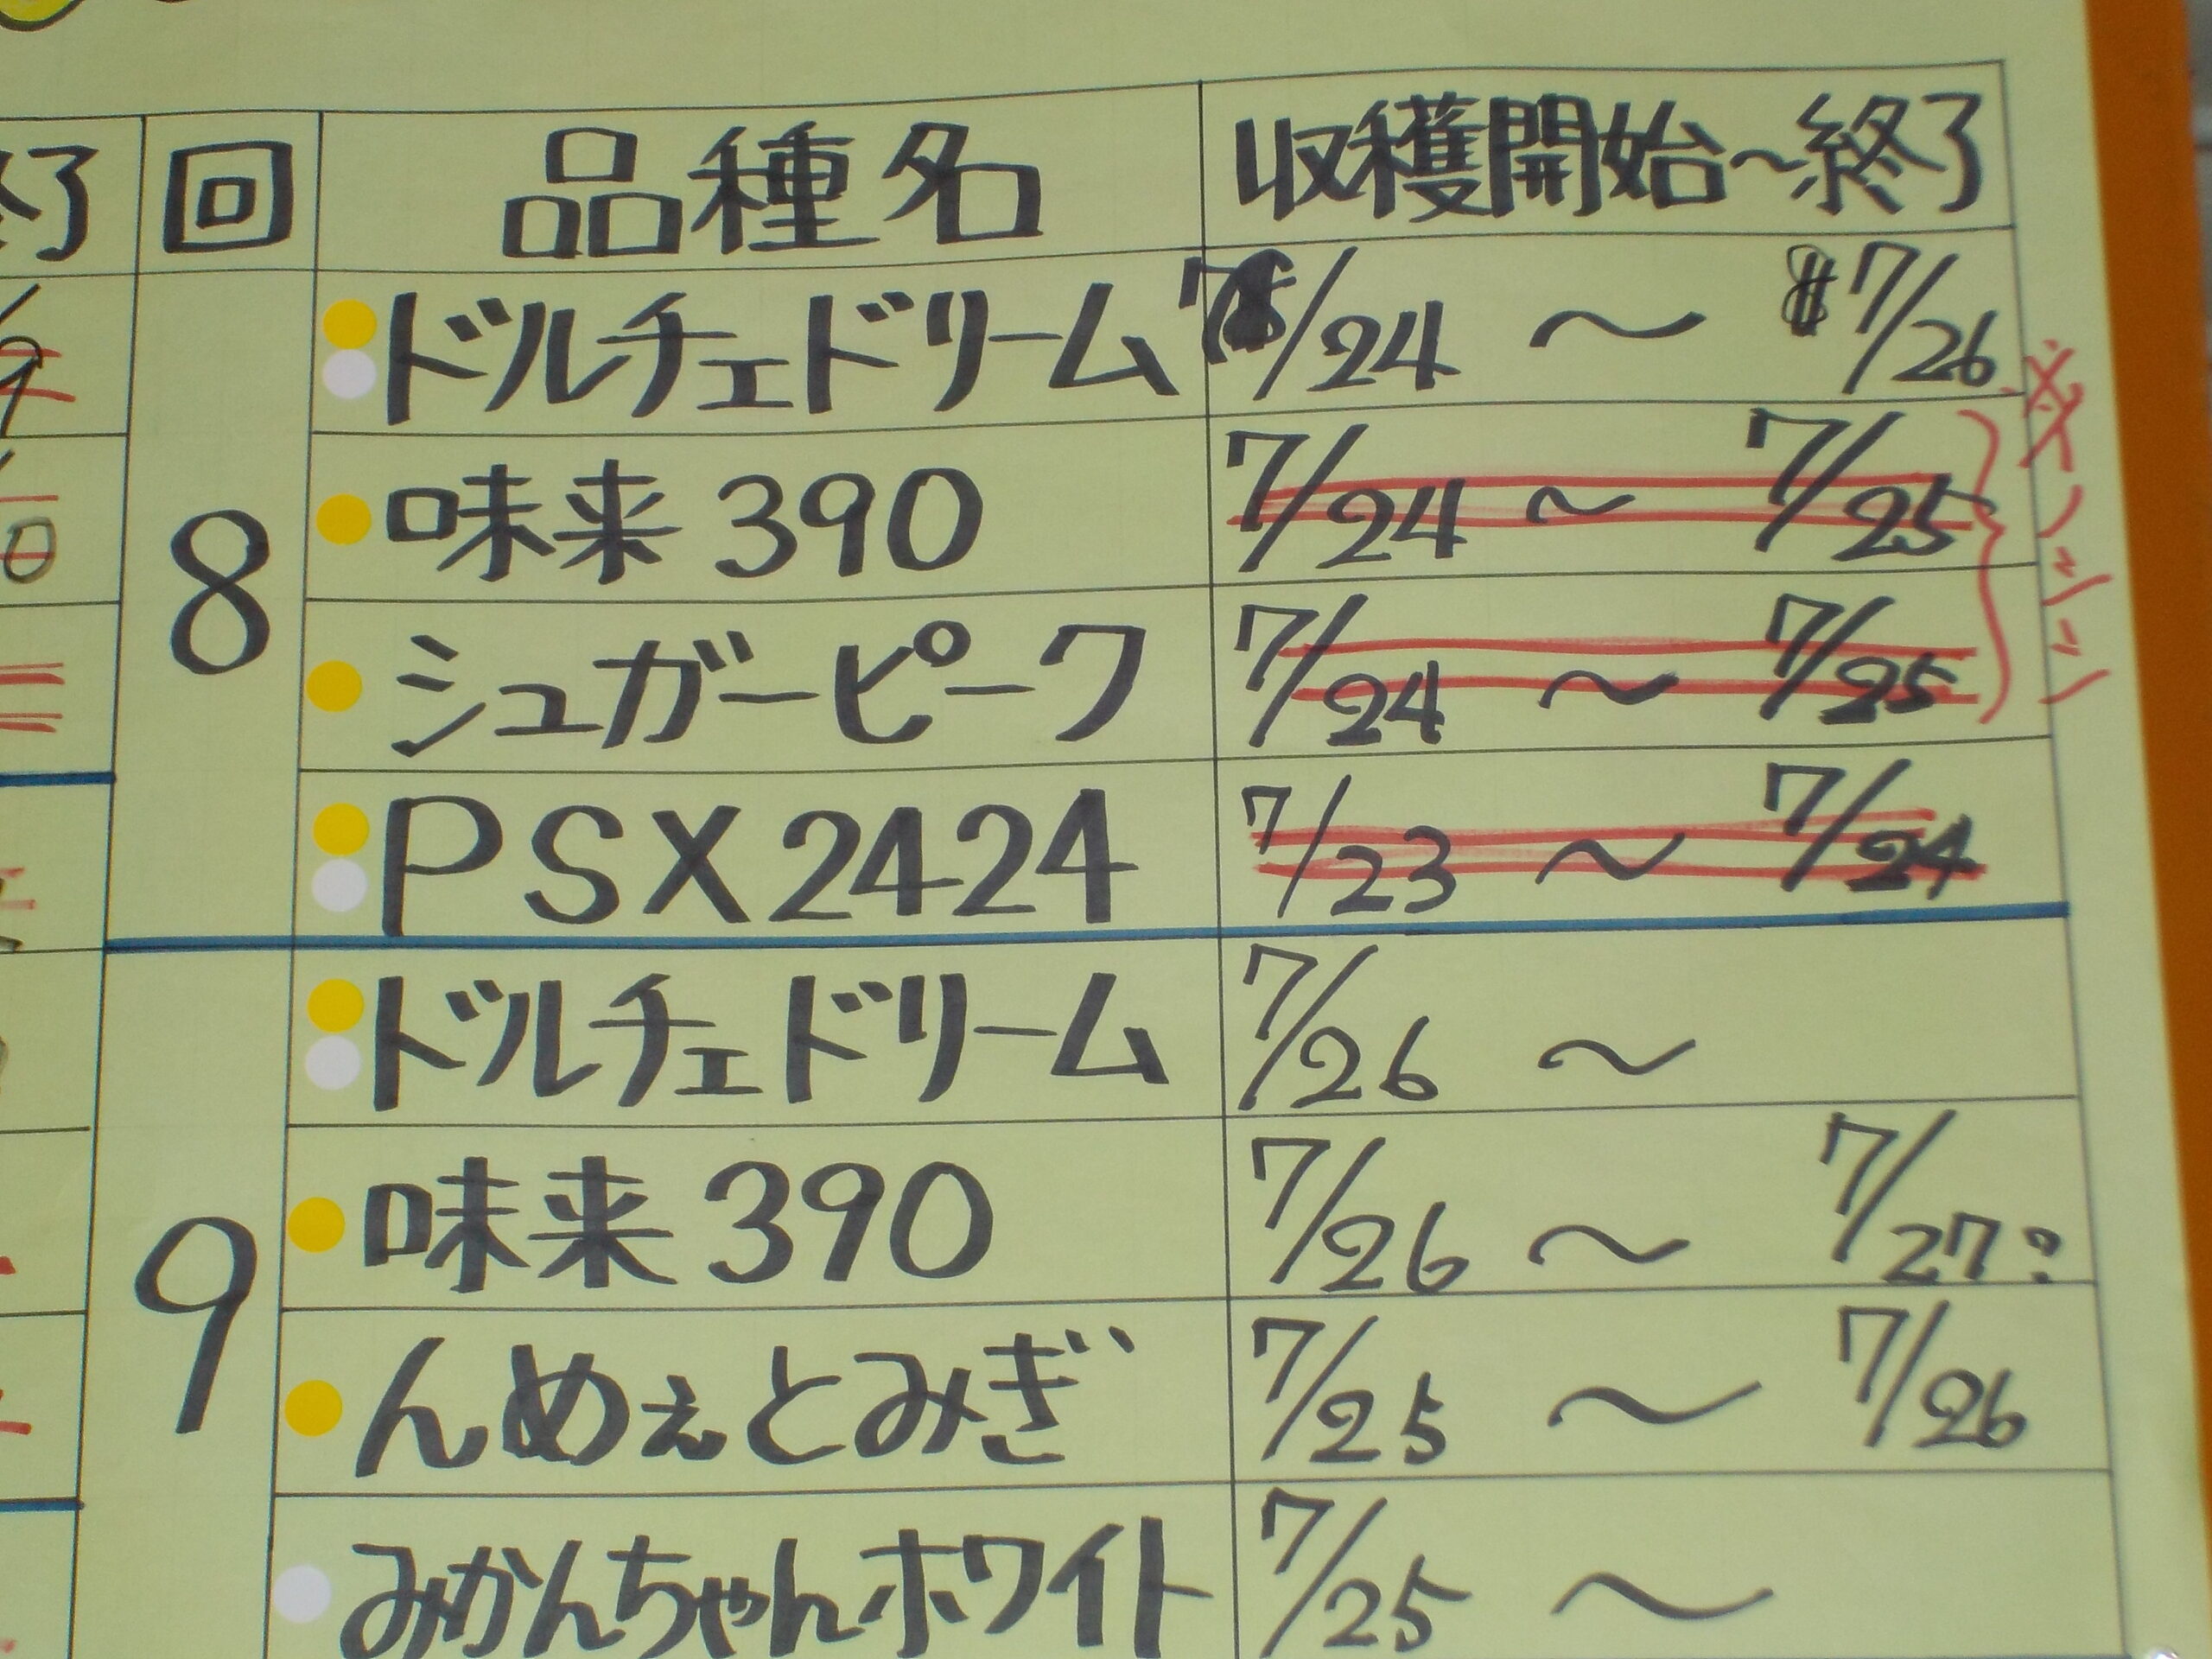 終了 回 品種名 収穫開始~終了
8
ドルチェドリーム 7/24 ~ 7/26
味来390 7/24 ~ 7/25
シュガーピーク 7/24 ~ 7/25
イノシシ
PSX2424 7/23 ~ 7/24
9
ドルチェドリーム 7/26 ~
味来390 7/26 ~ 7/27?
んめぇとみぎ 7/25 ~ 7/26
みかんちゃんホワイト 7/25 ~